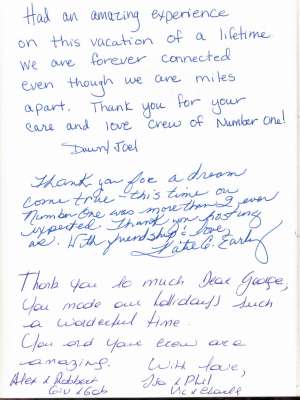 Had an amazing experience
on this vacation of a lifetime
we are forever connected
even though we are miles
apart. Thank you for your
care and love crew of Number One!
Dawn/Joel
Thank you for a dream
come true - this time on
Number One was more than I ever
expected. Thank you hosting
me. With friendship & love,
Katie C. Early
Thank you so much Dear George,
You made our holidays such
a wonderful time.
You and your crew are
amazing. With love,
Alex & Robbert Isa & Phil